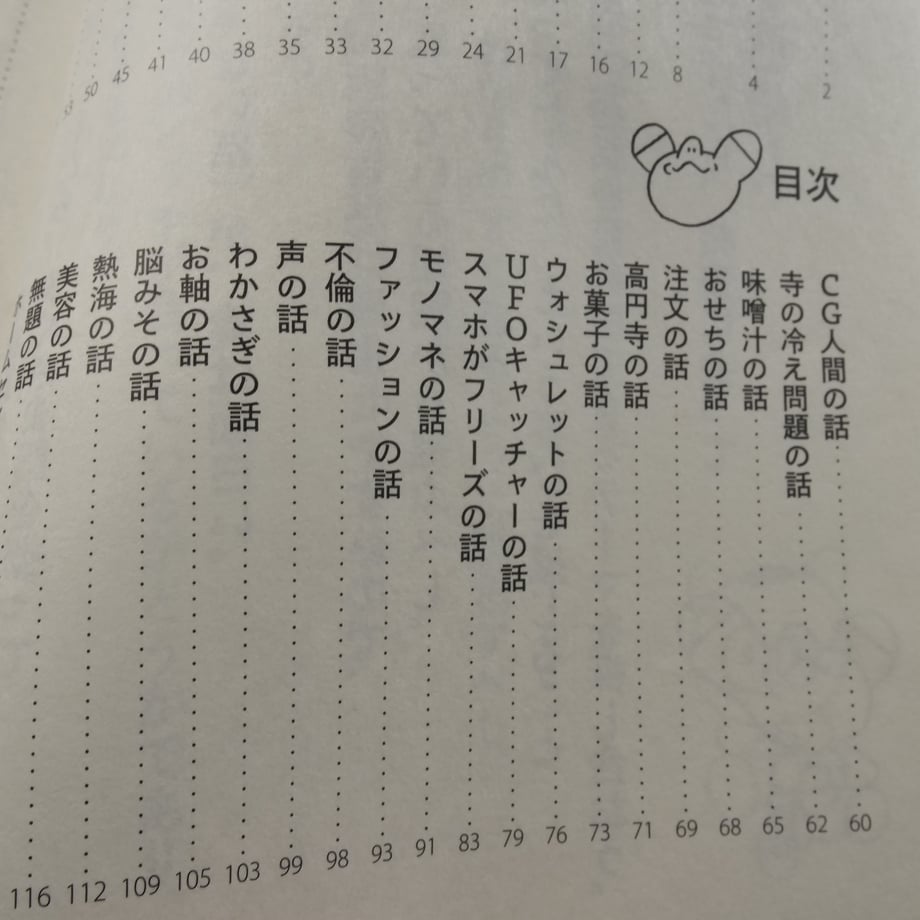 2
4
8
12
16
17
21
24
29
32
33
35
38
40
41
45
50
53
目次
CG人間の話 60
寺の冷え問題の話 62
味噌汁の話 65
おせちの話 68
注文の話 69
高円寺の話 71
お菓子の話 73
ウォシュレットの話 76
UFOキャッチャーの話 79
スマホがフリーズの話 83
モノマネの話 91
ファッションの話 93
不倫の話 98
声の話 99
わかさぎの話 103
お軸の話 105
脳みその話 109
熱海の話 112
美容の話 116
無題の話